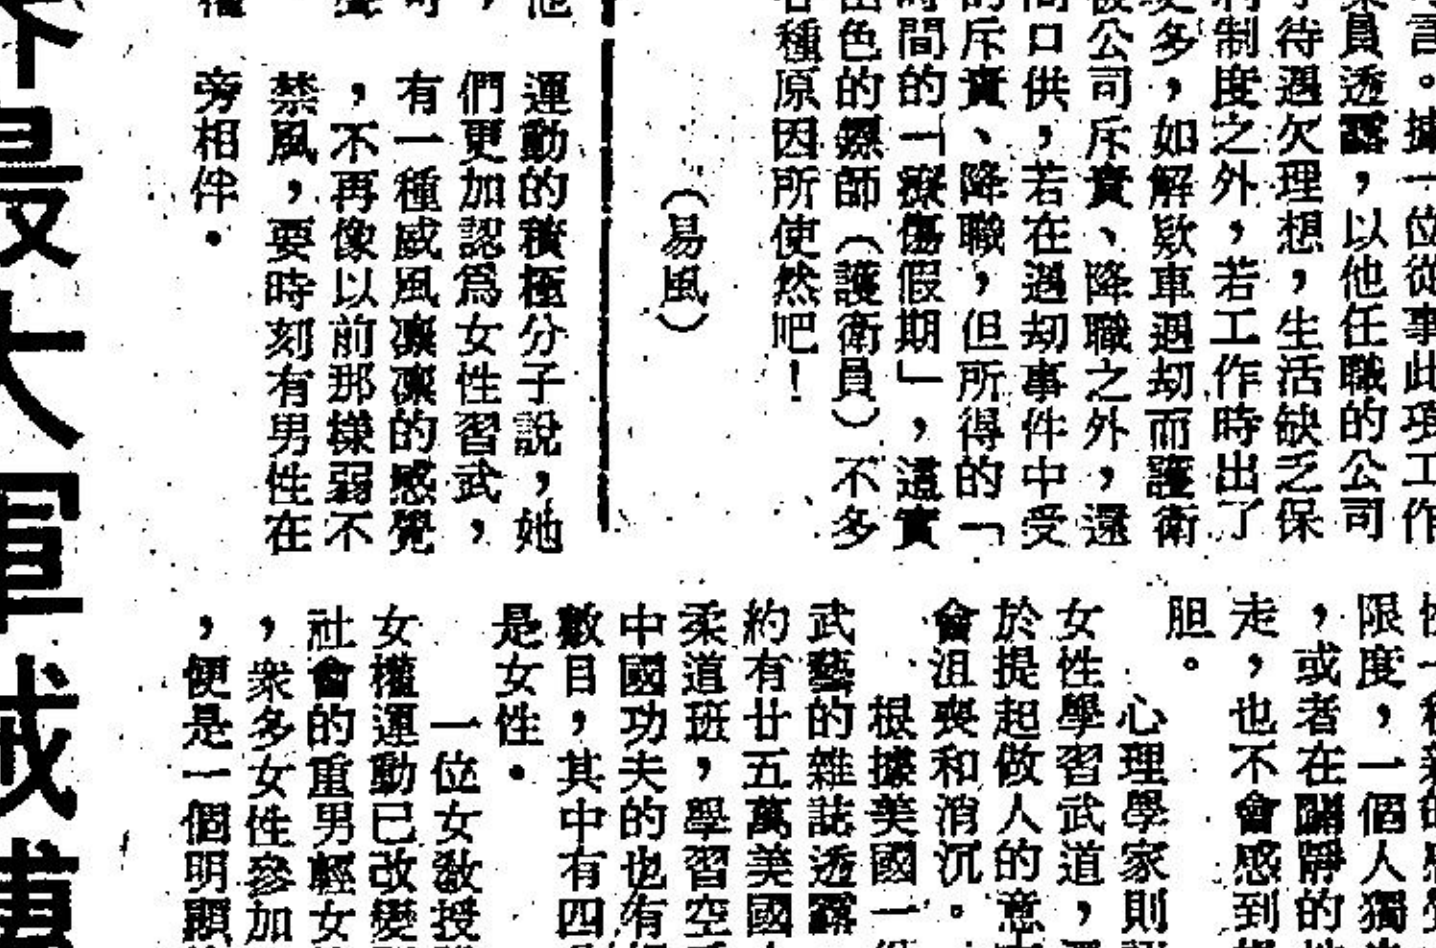 言。據一位從事此項工作
員透露，以他任職的公司
待遇欠理想，生活缺乏保
制度之外，若工作時出了
多，如解款車遇劫而護衛
公司斥責、降職之外，還
口供，若在遇劫事件中受
斥責、降職，但所得的「
間的「療傷假期」，這實
色的鏢師（護衛員）不多
種原因所使然吧！
（易風）
運動的積極分子說，她
們更加認爲女性習武，
有一種威風凜凜的感覺
，不再像以前那樣弱不
禁風，要時刻有男性在
旁相伴。
限度，一個人獨
，或者在闢靜的
走，也不會感到
胆。
心理學家則
女性學習武道，
於提起做人的意
會沮喪和消沉。
根據美國一
武藝的雜誌透露
約有廿五萬美國
柔道班，學習空
中國功夫的也有
數目，其中有四
是女性。
一位女教授
女權運動已改變
社會的重男輕女
，衆多女性參加
，便是一個明顯
最大軍械